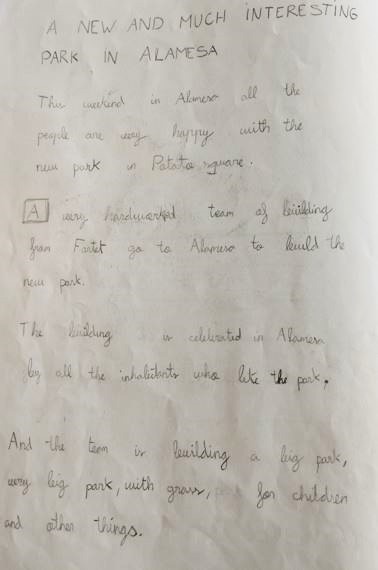 A NEW AND MUCH INTERESTING
PARK IN ALAMESA
This weekend in Alamesa all the
people are very happy with the
new park in Potato square.
A very hardworked team of building
from Fartet go to Alamesa to build the
new park.
The building is celebrated in Alamesa
by all the inhabitants who like the park.
And the team is building a big park,
very big park, with grass, for children
and other things.